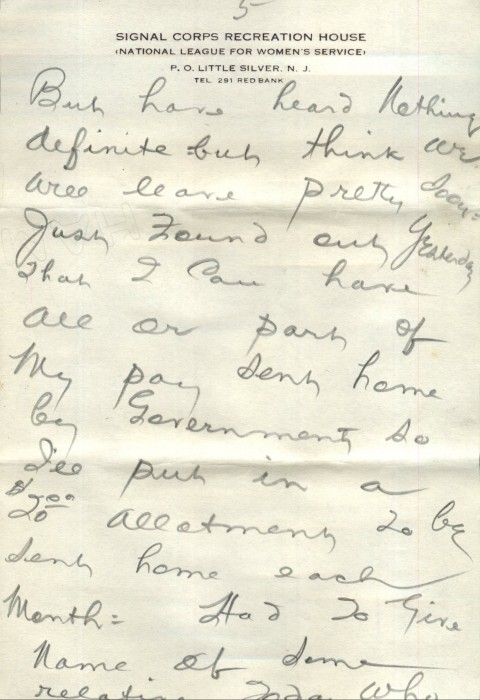 5
SIGNAL CORPS RECREATION HOUSE
(NATIONAL LEAGUE FOR WOMEN'S SERVICE)
P. O. LITTLE SILVER, N. J.
TEL. 291 RED BANK
But have heard Nothing
definite = but think we
will leave pretty soon =
Just Found out Yesterday
That I Can have
All or part of
My pay sent home
by Government so
I'll put in a
$20.00 Allotment to be
sent home each
Month = Had To Give
Name of some
relative Who